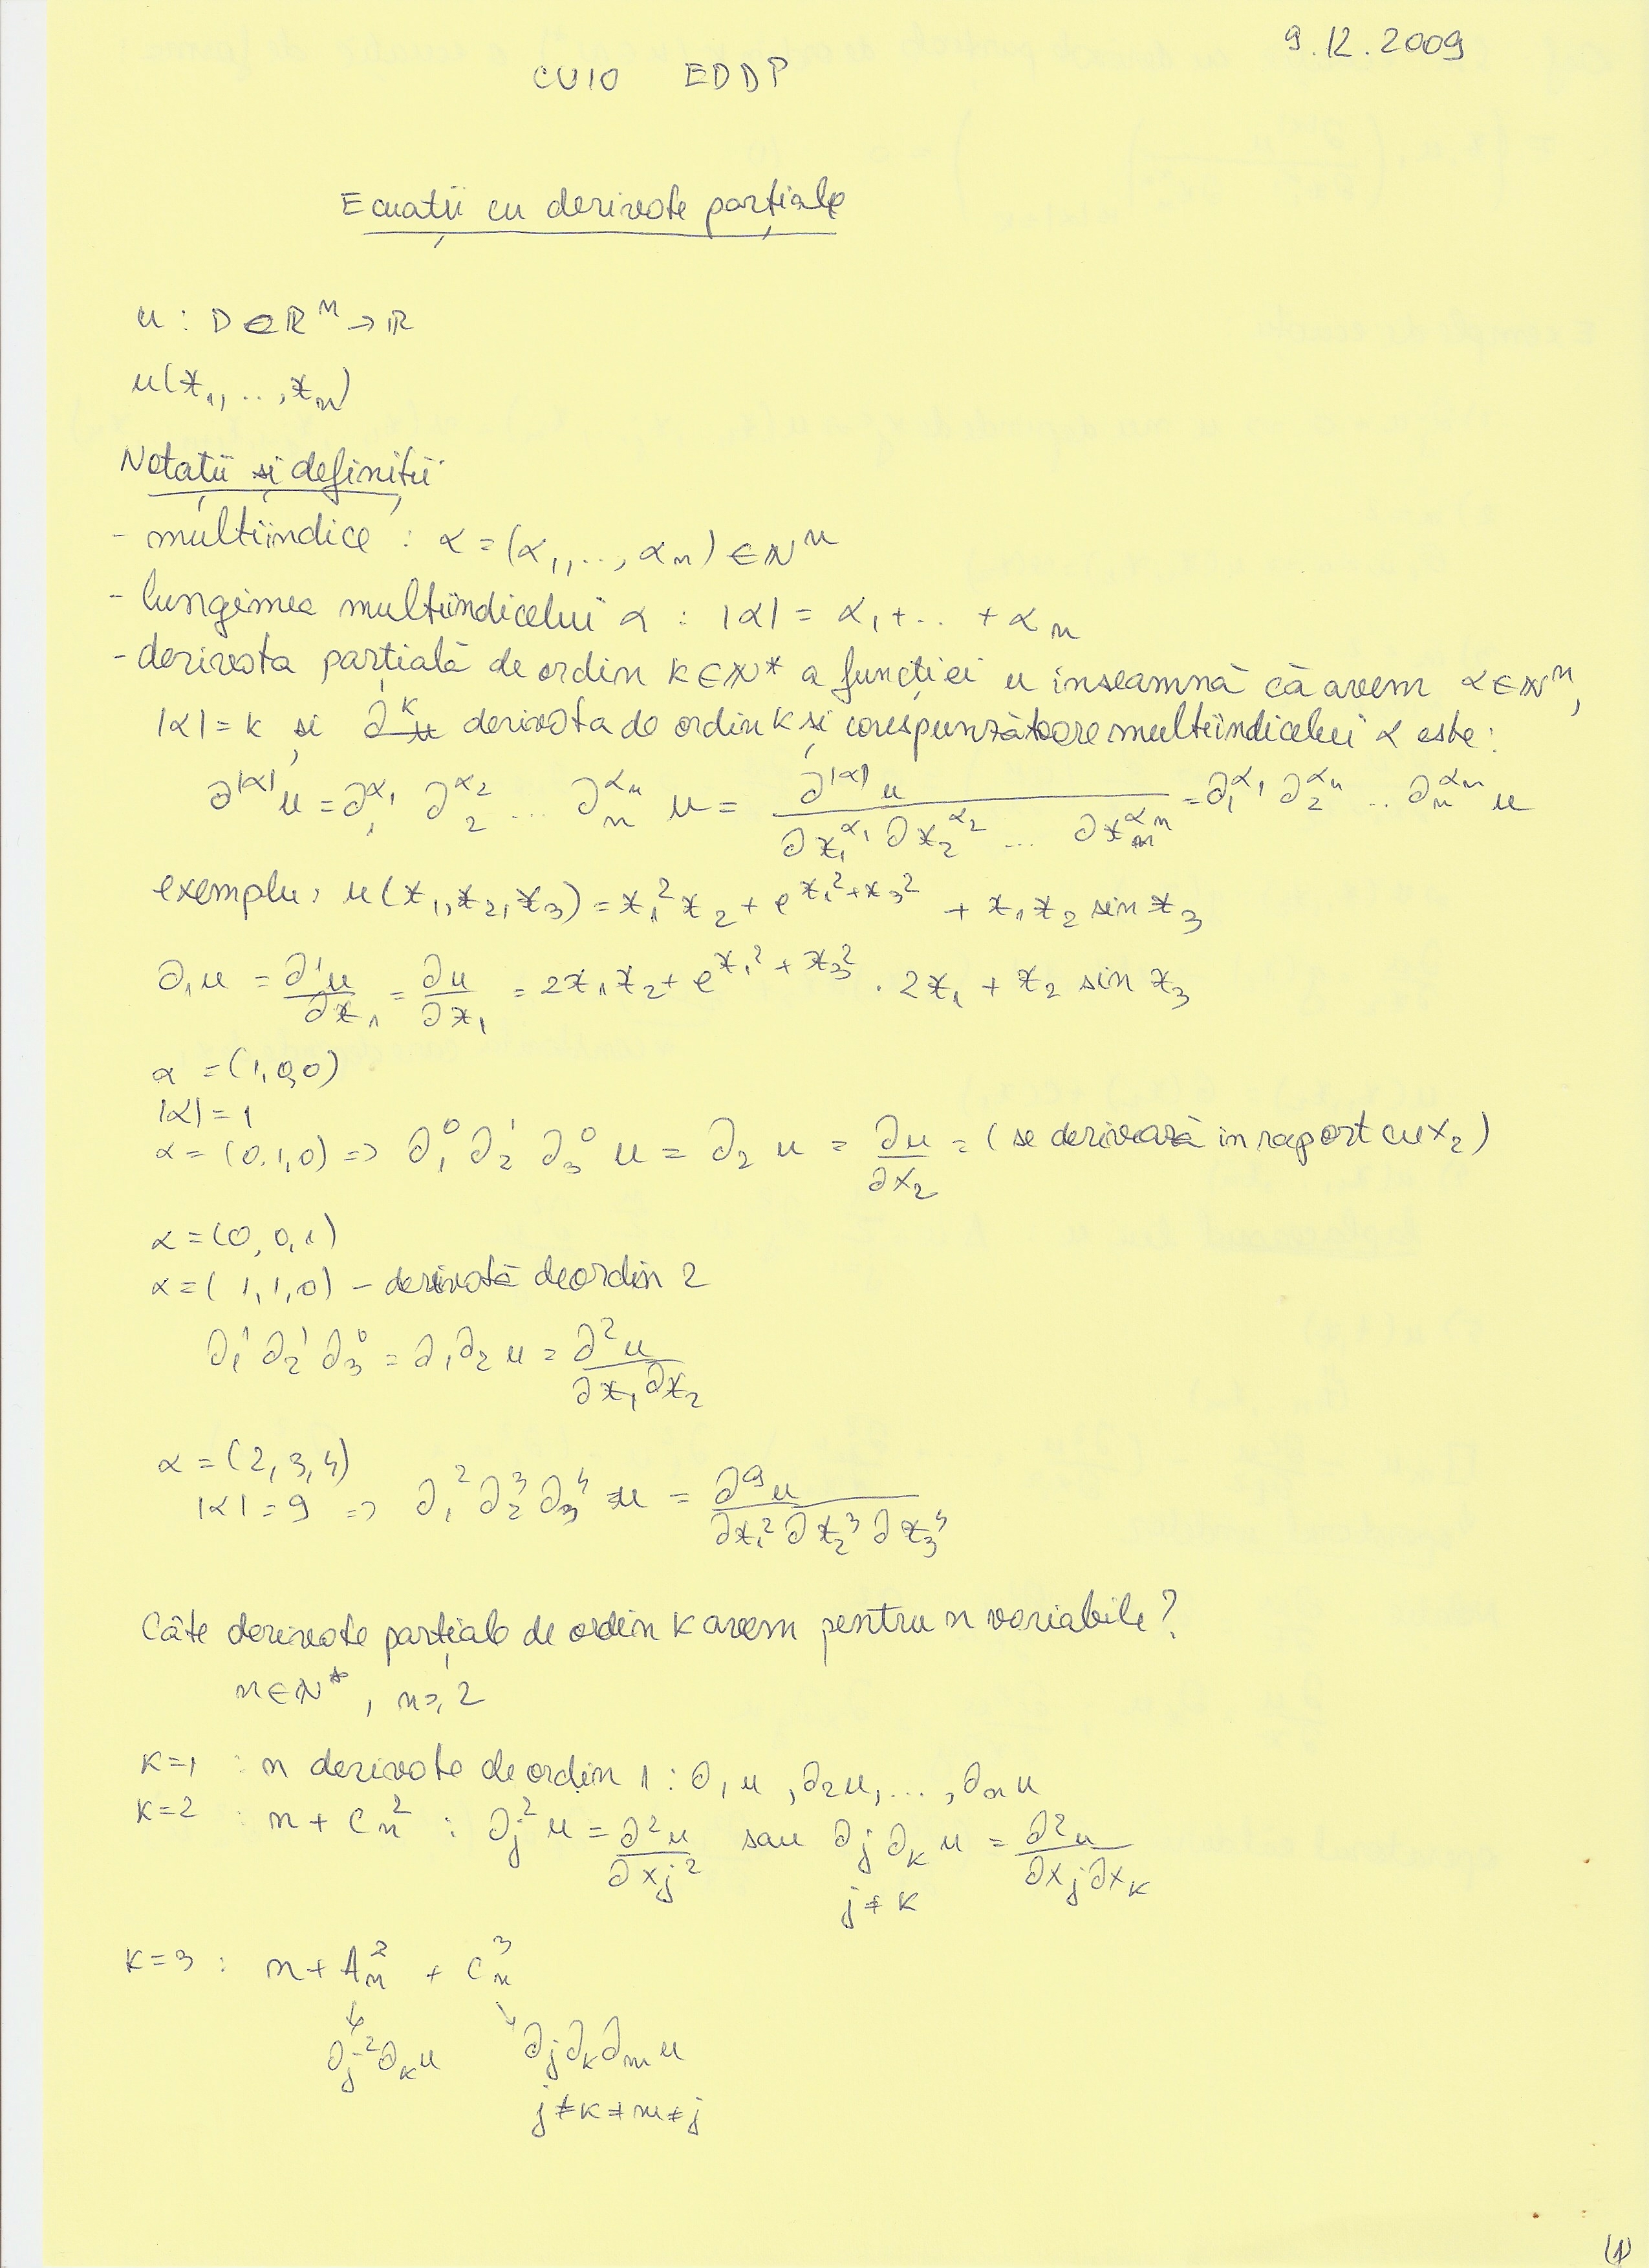 9.12.2009
CU10 EDDP
Ecuații cu derivate parțiale
u : D⊂ℝⁿ → ℝ
u(x₁, .., xₙ)
Notații și definiții
- multiindice : α = (α₁, .., αₙ) ∈ ℕⁿ
- lungimea multiindicelui α : |α| = α₁ + .. + αₙ
- derivata parțială de ordin k∈ℕ* a funcției u înseamnă că avem α∈ℕⁿ,
|α| = k și derivata de ordin k și corespunzătoare multiindicelui α este:
∂^|α| u = ∂₁^α₁ ∂₂^α₂ ... ∂ₙ^αₙ u = ∂^|α| u / (∂x₁^α₁ ∂x₂^α₂ ... ∂xₙ^αₙ) = ∂₁^α₁ ∂₂^αₙ .. ∂ₙ^αₙ u
exemplu: u(x₁, x₂, x₃) = x₁² x₂ + e^(x₁² + x₃²) + x₁ x₂ sin x₃
∂₁u = ∂¹u/∂x₁ = ∂u/∂x₁ = 2x₁x₂ + e^(x₁² + x₃²) · 2x₁ + x₂ sin x₃
α = (1, 0, 0)
|α| = 1
α = (0, 1, 0) => ∂₁⁰ ∂₂¹ ∂₃⁰ u = ∂₂ u = ∂u/∂x₂ = (se derivează in raport cu x₂)
α = (0, 0, 1)
α = (1, 1, 0) – derivată de ordin 2
∂₁¹ ∂₂¹ ∂₃⁰ = ∂₁∂₂ u = ∂²u/(∂x₁∂x₂)
α = (2, 3, 4)
|α| = 9 => ∂₁² ∂₂³ ∂₃⁴ u = ∂⁹u/(∂x₁² ∂x₂³ ∂x₃⁴)
Câte derivate parțiale de ordin k avem pentru n variabile?
n∈ℕ*, n ≥ 2
k=1 : n derivate de ordin 1 : ∂₁u, ∂₂u, ..., ∂ₙu
k=2 : n + Cₙ² : ∂ⱼ²u = ∂²u/∂xⱼ² sau ∂ⱼ∂ₖ u = ∂²u/(∂xⱼ∂xₖ)
j ≠ k
k=3 : n + Aₙ² + Cₙ³
↓ ↘
∂ⱼ²∂ₖu ∂ⱼ∂ₖ∂ₘu
j ≠ k ≠ m ≠ j
(1)